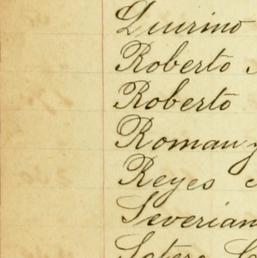 Quirino
Roberto
Roberto
Roman y
Reyes
Severian
Sotero C